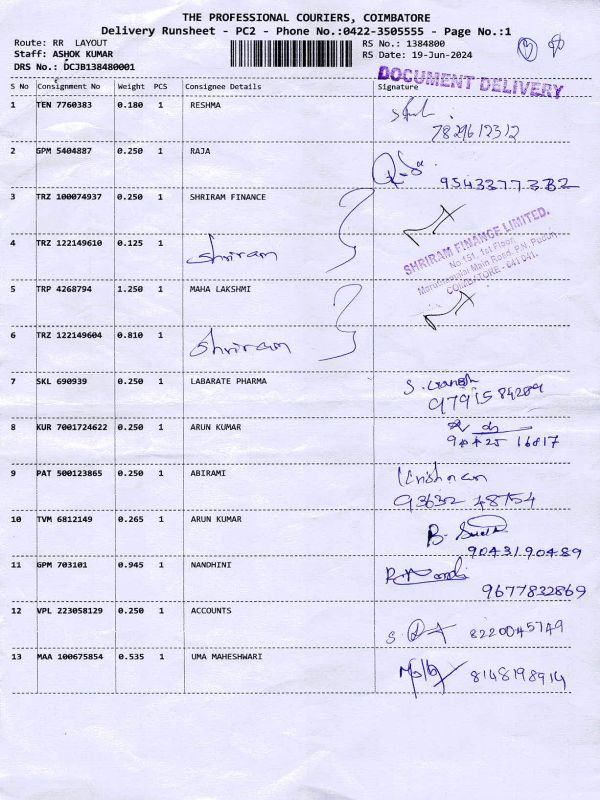 THE PROFESSIONAL COURIERS, COIMBATORE
Delivery Runsheet - PC2 - Phone No.:0422-3505555 - Page No.:1
Route: RR LAYOUT RS No.: 1384800
Staff: ASHOK KUMAR RS Date: 19-Jun-2024
DRS No.: DCJB138480001
DOCUMENT DELIVERY
S No Consignment No Weight PCS Consignee Details Signature
1 TEN 7760383 0.180 1 RESHMA
2 GPM 5404887 0.250 1 RAJA
3 TRZ 100074937 0.250 1 SHRIRAM FINANCE
4 TRZ 122149610 0.125 1 Shriram
SHRIRAM FINANCE LIMITED.
No 151, 1st Floor,
COIMBATORE - 641 041.
5 TRP 4268794 1.250 1 MAHA LAKSHMI
6 TRZ 122149604 0.810 1 Shriram
7 SKL 690939 0.250 1 LABARATE PHARMA S. Ganesh
8 KUR 7001724622 0.250 1 ARUN KUMAR
9 PAT 500123865 0.250 1 ABIRAMI
93632 48754
10 TVM 6812149 0.265 1 ARUN KUMAR
9043190489
11 GPM 703101 0.945 1 NANDHINI
9677832869
12 VPL 223058129 0.250 1 ACCOUNTS 8220045749
13 MAA 100675854 0.535 1 UMA MAHESHWARI 8148198914